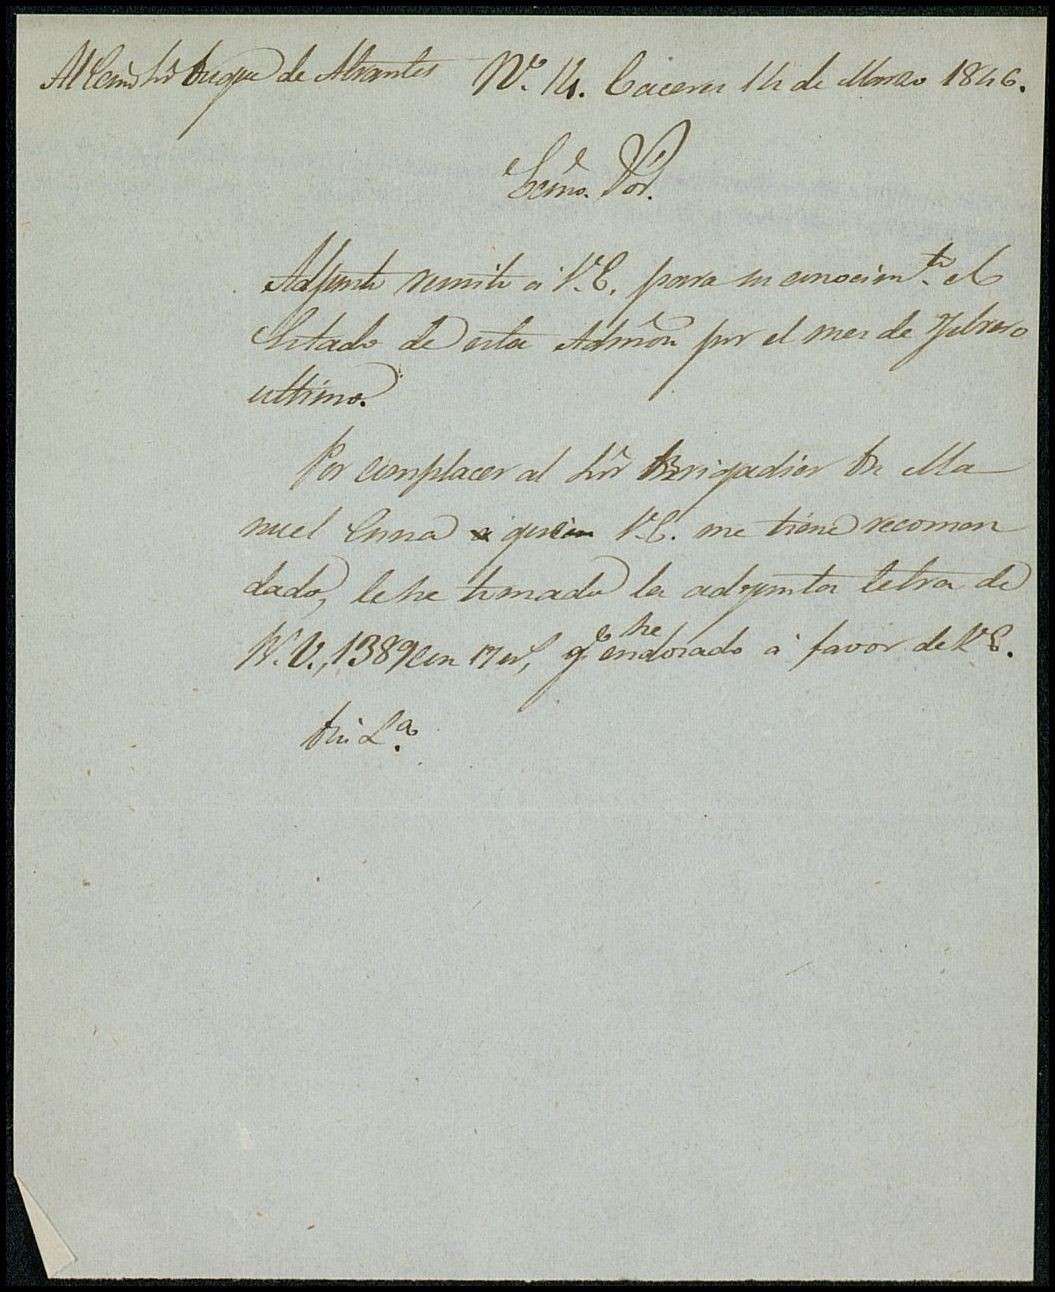 Al Ecmo Sr Duque de Abrantes Nº. 14. Cáceres 14 de Marzo 1846.
Ecmo. Sor.
Adjunto remito á V.E. para su conocimto. el
Estado de esta Admon por el mes de Febrero
ultimo.
Por complacer al Sr Brigadier Dn Ma
nuel Enna á quien V.E. me tiene recomen
dado, le he tomado la adjunta letra de
R.V., 1389 con 17 ms, qe he endosado á favor de V.E.